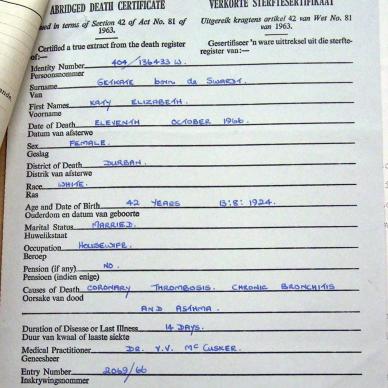 ABRIDGED DEATH CERTIFICATE
VERKORTE STERFTESERTIFIKAAT
ued in terms of Section 42 of Act No. 81 of 1963.
Uitgereik kragtens artikel 42 van Wet No. 81 van 1963.
Certified a true extract from the death register of:—
Gesertifiseer 'n ware uittreksel uit die sterfte-register van:—
Identity Number 404/136433 W.
Persoonsnommer
Surname GETKATE born de SWARDT.
Van
First Names KATY ELIZABETH.
Voorname
Date of Death ELEVENTH OCTOBER 1966.
Datum van afsterwe
Sex FEMALE.
Geslag
District of Death DURBAN.
Distrik van afsterwe
Race WHITE.
Ras
Age and Date of Birth 42 YEARS 13:8:1924.
Ouderdom en datum van geboorte
Marital Status MARRIED.
Huwelikstaat
Occupation HOUSEWIFE.
Beroep
Pension (if any) NO.
Pensioen (indien enige)
Causes of Death CORONARY THROMBOSIS. CHRONIC BRONCHITIS
Oorsake van dood
AND ASTHMA.
Duration of Disease or Last Illness 14 DAYS.
Duur van kwaal of laaste siekte
Medical Practitioner DR. V.V. McCUSKER.
Geneesheer
Entry Number 2069/66
Inskrywingsnommer